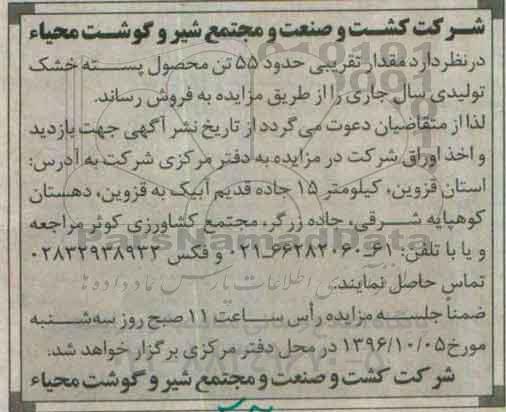 شرکت کشت و صنعت و مجتمع شیر و گوشت محیاء
درنظر دارد مقدار تقریبی حدود ۵۵ تن محصول پسته خشک
تولیدی سال جاری را از طریق مزایده به فروش رساند.
لذا از متقاضیان دعوت می گردد از تاریخ نشر آگهی جهت بازدید
و اخذ اوراق شرکت در مزایده به دفتر مرکزی شرکت به آدرس:
استان قزوین، کیلومتر ۱۵ جاده قدیم آبیک به قزوین، دهستان
کوهپایه شرقی، جاده زرگر، مجتمع کشاورزی کوثر مراجعه
و یا با تلفن: ۶۱-۶۶۲۸۲۰۶۰-۰۲۱ و فکس ۰۲۸۳۲۹۳۸۹۳۲
تماس حاصل نمایند.
ضمناً جلسه مزایده رأس ساعت ۱۱ صبح روز سه شنبه
مورخ ۱۳۹۶/۱۰/۰۵ در محل دفتر مرکزی برگزار خواهد شد.
شرکت کشت و صنعت و مجتمع شیر و گوشت محیاء
ParsNamadData